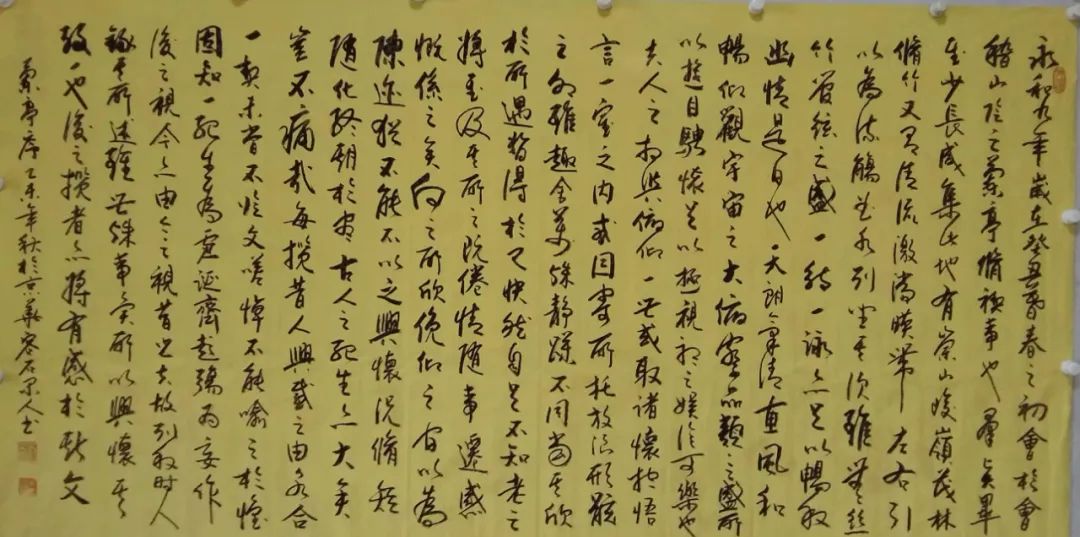 永和九年歲在癸丑暮春之初會於會
稽山陰之蘭亭脩禊事也群賢畢
至少長咸集此地有崇山峻嶺茂林
脩竹又有清流激湍暎帶左右引
以為流觴曲水列坐其次雖無絲
竹管弦之盛一觴一詠亦足以暢敘
幽情是日也天朗氣清惠風和
暢仰觀宇宙之大俯察品類之盛所
以遊目騁懷足以極視聽之娛信可樂也
夫人之相與俯仰一世或取諸懷抱悟
言一室之內或因寄所托放浪形骸
之外雖趣舍萬殊靜躁不同當其欣
於所遇暫得於己快然自足不知老之
將至及其所之既倦情隨事遷感
慨係之矣向之所欣俛仰之間以為
陳迹猶不能不以之興懷況脩短
隨化終期於盡古人云死生亦大矣
豈不痛哉每攬昔人興感之由若合
一契未嘗不臨文嗟悼不能喻之於懷
固知一死生為虛誕齊彭殤為妄作
後之視今亦由今之視昔悲夫故列敘時人
錄其所述雖世殊事異所以興懷其
致一也後之攬者亦將有感於斯文
蘭亭序乙未年秋於京華人書